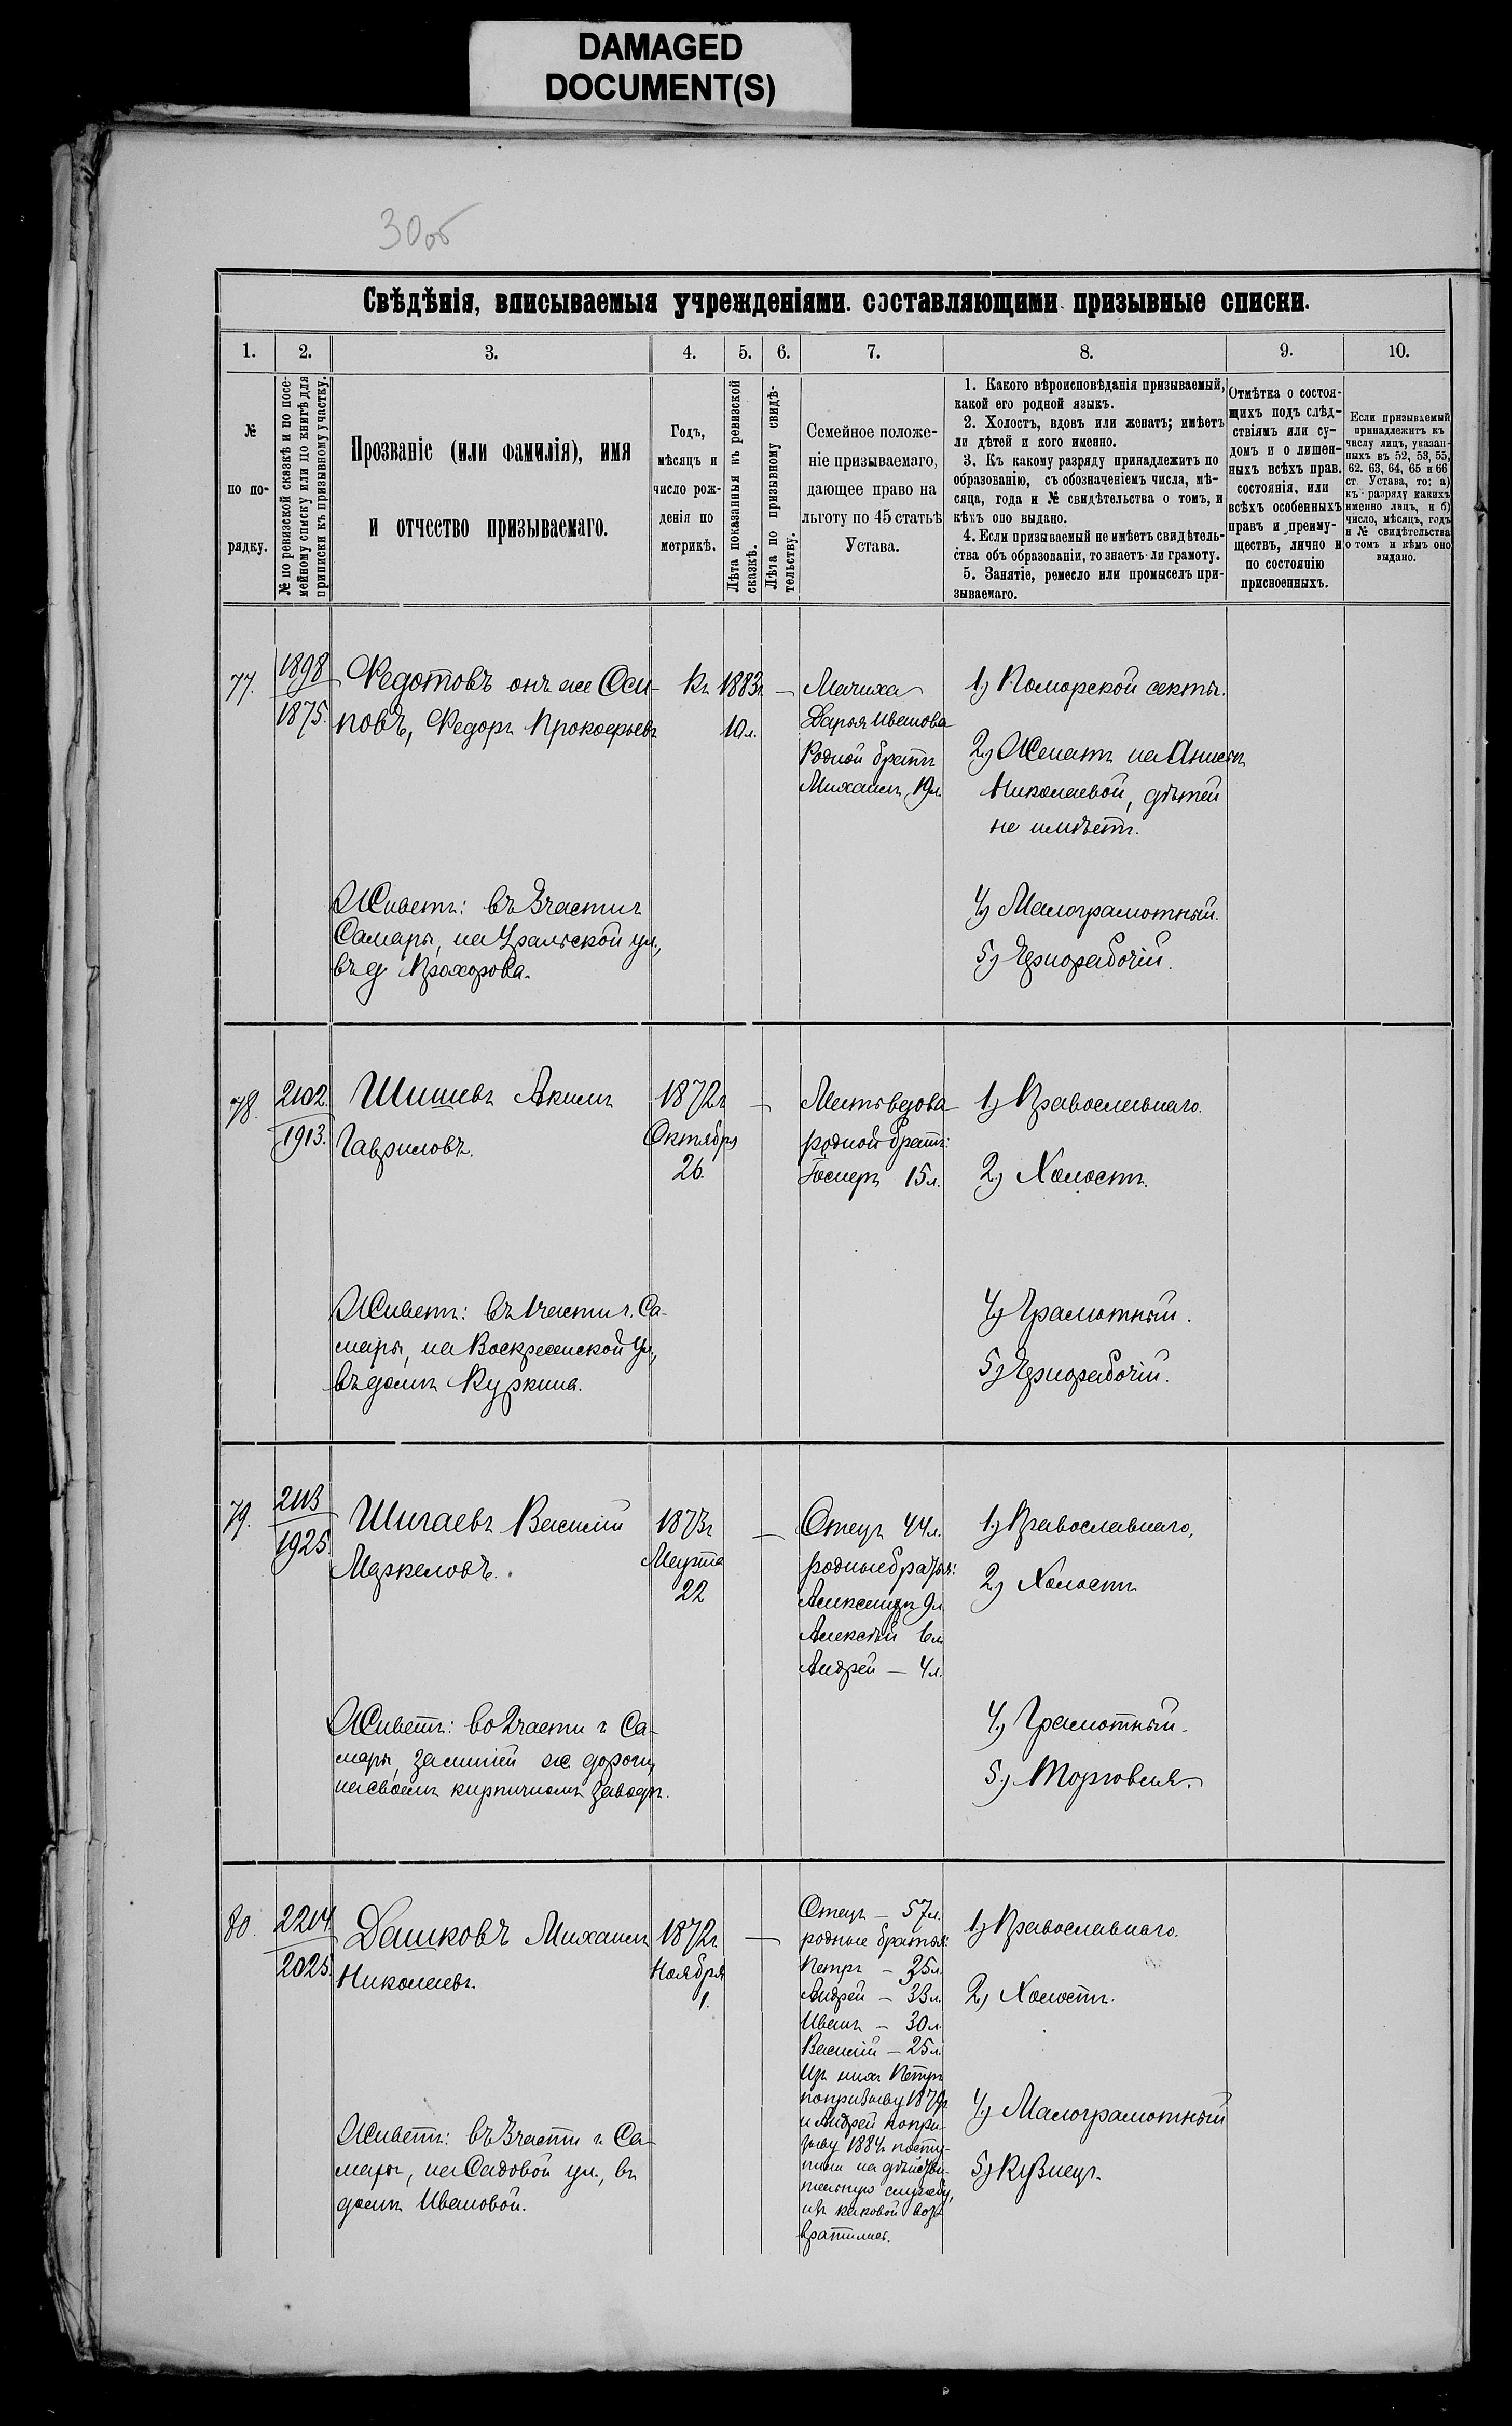 DAMAGED
DOCUMENT(S)
30об
Свѣдѣнія, вписываемыя учрежденіями. составляющими призывные списки.
1. 2. 3. 4. 5. 6. 7. 8. 9. 10.
№
по по-
рядку.
№ по ревизской сказкѣ и по посе-
мейному списку или по книгѣ для
приписки къ призывному участку.
Прозваніе (или фамилія), имя
и отчество призываемаго.
Годъ,
мѣсяцъ и
число рож-
денія по
метрикѣ.
Лѣта показанныя въ ревизской
сказкѣ.
Лѣта по призывному свидѣ-
тельству.
Семейное положе-
ніе призываемаго,
дающее право на
льготу по 45 статьѣ
Устава.
1. Какого вѣроисповѣданія призываемый,
какой его родной языкъ.
2. Холостъ, вдовъ или женатъ; имѣетъ
ли дѣтей и кого именно.
3. Къ какому разряду принадлежитъ по
образованію, съ обозначеніемъ числа, мѣ-
сяца, года и № свидѣтельства о томъ, и
кѣмъ оно выдано.
4. Если призываемый не имѣетъ свидѣтель-
ства объ образованіи, то знаетъ-ли грамоту.
5. Занятіе, ремесло или промыселъ при-
зываемаго.
Отмѣтка о состоя-
щихъ подъ слѣд-
ствіямъ или су-
домъ и о лишен-
ныхъ всѣхъ прав.
состоянія, или
всѣхъ особенныхъ
правъ и преиму-
ществъ, лично и
по состоянію
присвоенныхъ.
Если призываемый
принадлежитъ къ
числу лицъ, указан-
ныхъ въ 52, 53, 55,
62. 63, 64, 65 и 66
ст. Устава, то: а)
къ разряду какихъ
именно лицъ, и б)
число, мѣсяцъ, годъ
и № свидѣтельства
о томъ и кѣмъ оно
выдано.
77.
1898
1875.
Ѳедотовъ онъ же Оси-
повъ, Ѳедоръ Прокофьевъ
Живетъ: въ 3 части г.
Самары, на Уральской ул.,
въ д Прохорова.
Къ 1883г.
10л.
—
Мачиха
Дарья Иванова
Родной братъ
Михаилъ 19л.
1) Поморской секты.
2) Женатъ на Анисьѣ
Николаевой, дѣтей
не имѣетъ.
4) Малограмотный.
5) Чернорабочій.
78.
2102.
1913.
Шишевъ Акимъ
Гавриловъ.
Живетъ: въ 1 части г. Са-
мары, на Воскресенской ул.,
въ домѣ Куркина.
1872г
Октября
26.
—
родной братъ:
15л.
1) Православнаго.
2) Холостъ.
4) Грамотный.
5) Чернорабочій.
79.
2113
1925.
Шигаевъ Василій
Маркеловъ.
Живетъ: во 2 части г Са-
мары, за линіей ж. дороги,
на своемъ кирпичномъ заводѣ.
1873г
Марта
22
—
Отецъ 44л.
родные братья:
Александръ 9л
Алексѣй 6л
Андрей — 4л.
1) Православнаго,
2) Холостъ
4) Грамотный.
5) Торговля.
80.
2214
2025.
Дашковъ Михаилъ
Николаевъ.
Живетъ: въ 3 части г. Са-
мары, на Садовой ул., въ
домѣ Ивановой.
1872г
Ноября
1.
—
Отецъ — 57л.
родные братья:
Петръ — 35л
Андрей — 33л.
Иванъ — 30л.
Василій — 25л.
Изъ нихъ Петръ
по призыву 1879г
и Андрей по при-
зыву 1884г посту-
пили на дѣйстви-
тельную службу,
изъ каковой воз-
вратились.
1) Православнаго.
2) Холостъ.
4) Малограмотный
5) Кузнецъ.